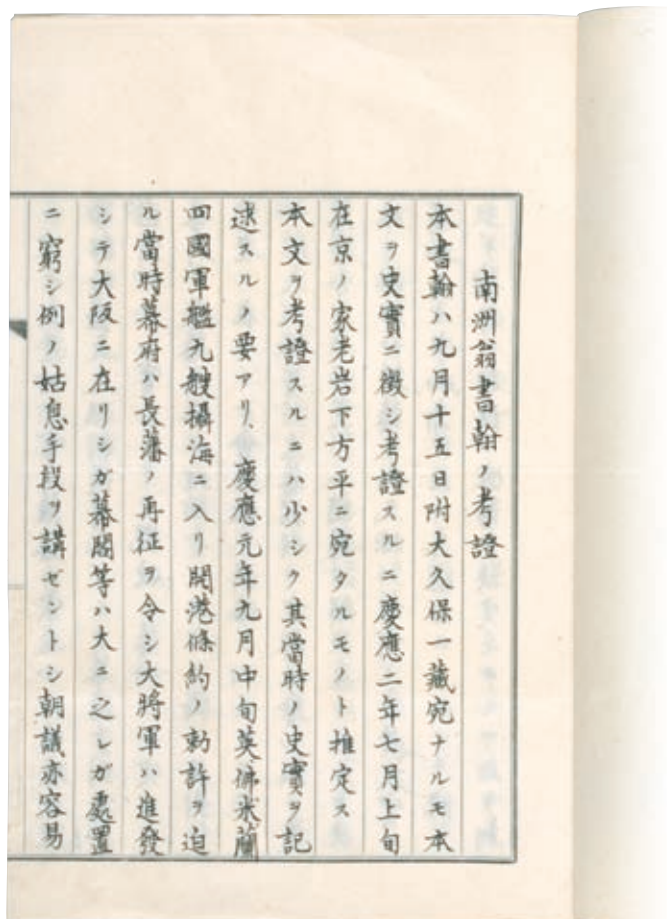 南洲翁書翰ノ考證
本書翰ハ九月十五日附大久保一藏宛ナルモ本
文ヲ史實ニ徴シ考證スルニ慶應二年七月上旬
在京ノ家老岩下方平ニ宛タルモノト推定ス
本文ヲ考證スルニハ少シク其當時ノ史實ヲ記
逑スルノ要アリ、慶應元年九月中旬英佛米蘭
四國軍艦九艘攝海ニ入リ開港條約ノ勅許ヲ迫
ル當時幕府ハ長藩ノ再征ヲ令シ大將軍ハ進發
シテ大阪ニ在リシガ幕閣等ハ大ニ之レガ處置
ニ窮シ例ノ姑息手段ヲ講ゼントシ朝議亦容易